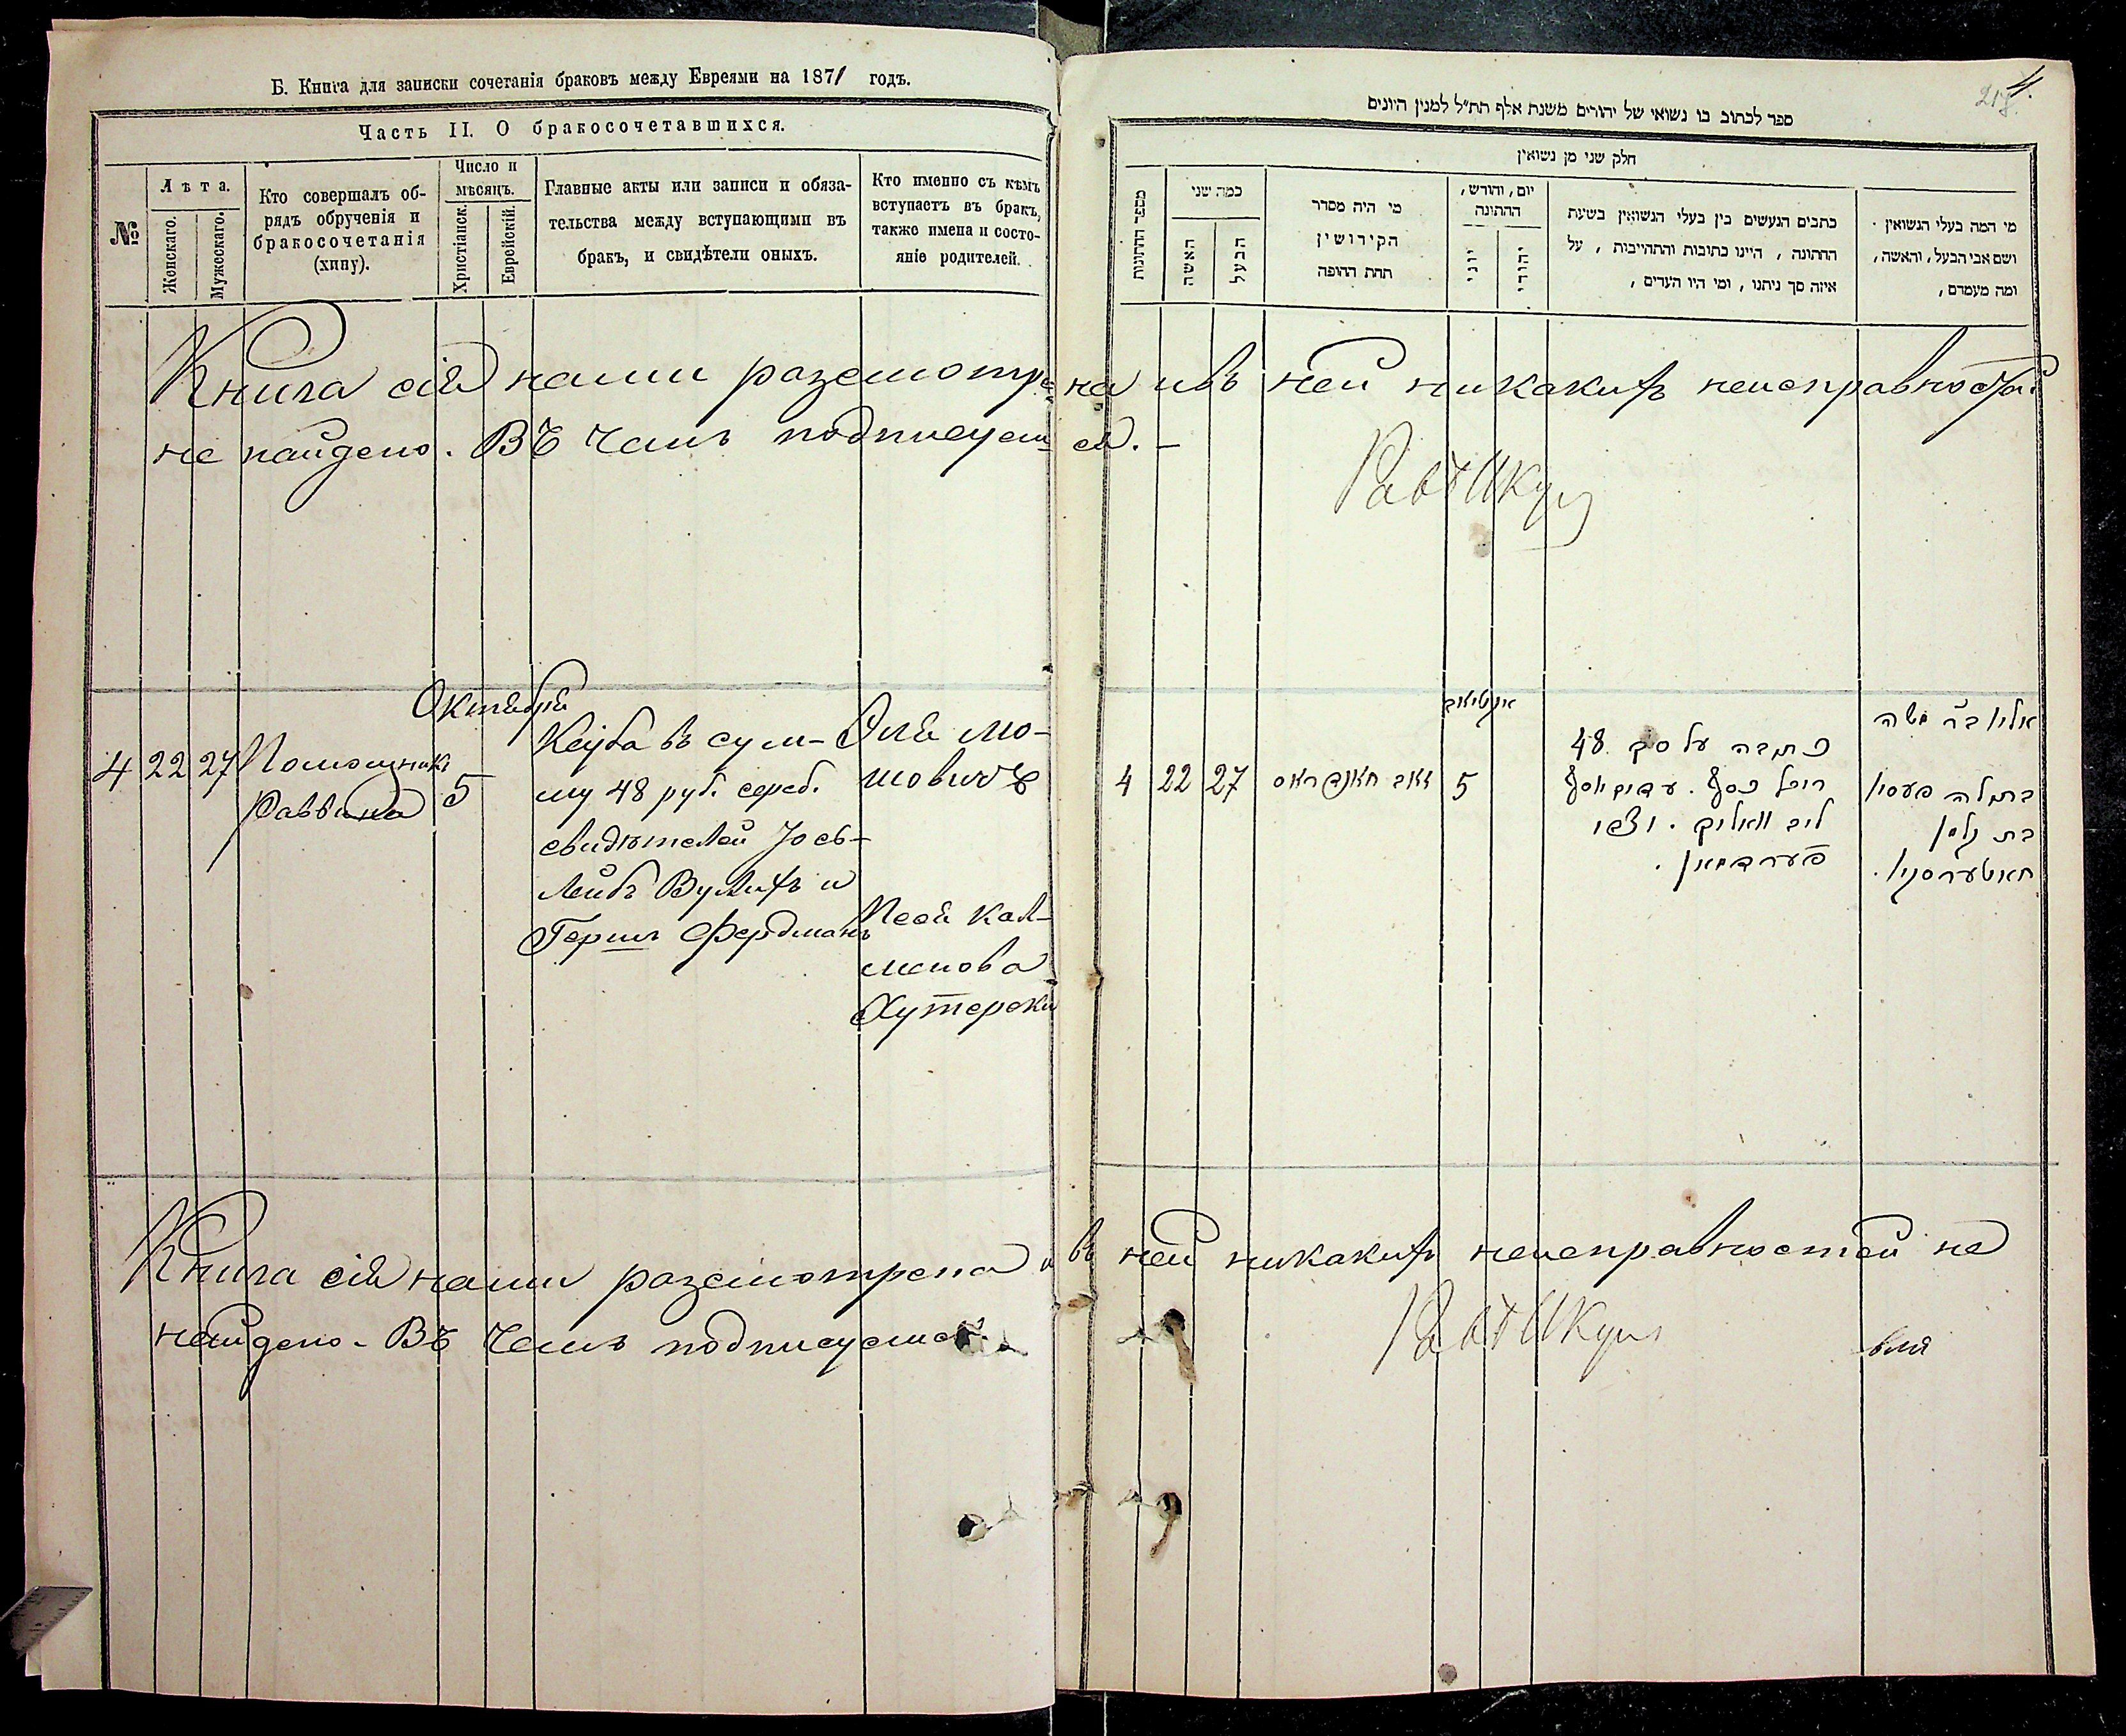 Б. Книга для записки сочетанія браковъ между Евреями на 1871 годъ.
Часть II. О бракосочетавшихся.
№
Лѣта.
Женскаго.
Мужескаго.
Кто совершалъ об-
рядъ обрученія и
бракосочетанія
(хипу).
Число и
мѣсяцъ.
Христіанск.
Еврейскій.
Главные акты или записи и обяза-
тельства между вступающими въ
бракъ, и свидѣтели оныхъ.
Кто именно съ кѣмъ
вступаетъ въ бракъ,
также имена и состо-
яніе родителей.
Книга сія нами разсмотре
не найдено. Въ чемъ подписуем
Октября
4 22 27
Помощникъ
Раввина
5
въ сум-
му 48 руб. сереб.
свидѣтелей Іось-
Лейбъ Вулихъ и
Гершъ Фердманъ
Эля Мо-
шовичъ
Песя Кал-
манова
Хутерска
Книга сія нами разсмотрена и
найдено. Въ чемъ подписуемся.
4.
ספר לכתוב בו נשואי של יהודים משנת אלף תת״ל למנין היונים
חלק שני מן נשואין
מספר החתונות
כמה שני
האשה
הבעל
מי היה מסדר
הקידושין
תחת החופה
יום, וחודש,
החתונה
יוני
יהודי
כתבים הנעשים בין בעלי הנשואין בשעת
החתונה, היינו כתובות והתחייבות, על
איזה סך ניתנו, ומי היו העדים,
מי המה בעלי הנשואין.
ושם אבי הבעל, והאשה,
ומה מעמדם,
на и въ ней никакихъ неисправностей
ся. –
4 22 27
5
כתובה על סך 48
רובל כסף.
פערדמאן.
אליו ב״ר משה
בתולה פעסיא
בת
въ ней никакихъ неисправностей не